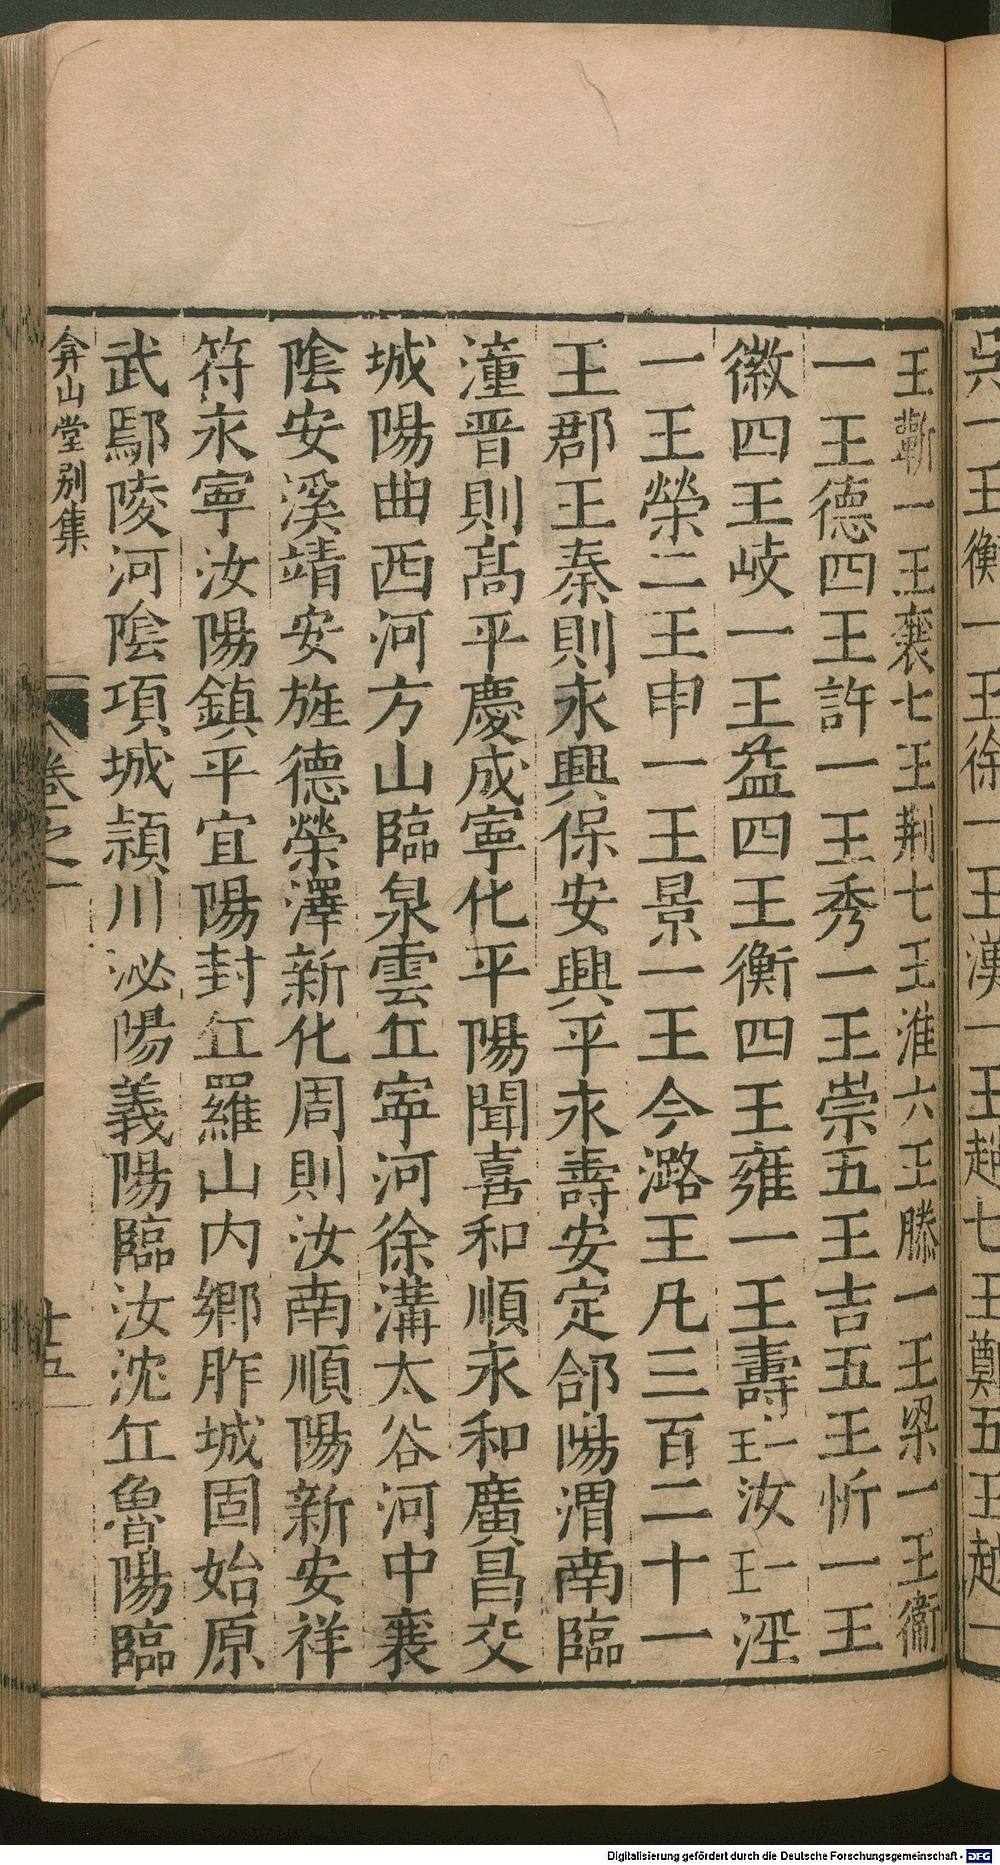 吳一王衡一王徐一王漢一王趙七王鄭五王越一
王蘄一王襄七王荆七王淮六王滕一王梁一王衞
一王德四王許一王秀一王崇五王吉五王忻一王
徽四王岐一王益四王衡四王雍一王壽一王汝一王涇
一王榮二王申一王景一王今潞王凡三百二十一
王郡王秦則永興保安興平永壽安定郃陽渭南臨
潼晋則髙平慶成寧化平陽聞喜和順永和廣昌交
城陽曲西河方山臨泉雲丘寧河徐溝太谷河中襄
陰安溪靖安旌德榮澤新化周則汝南順陽新安祥
符永寧汝陽鎮平宜陽封丘羅山内鄉胙城固始原
武鄢陵河陰項城頴川泌陽義陽臨汝沈丘魯陽臨
弇山堂别集 卷之一 廿五
Digitalisierung gefördert durch die Deutsche Forschungsgemeinschaft - DFG